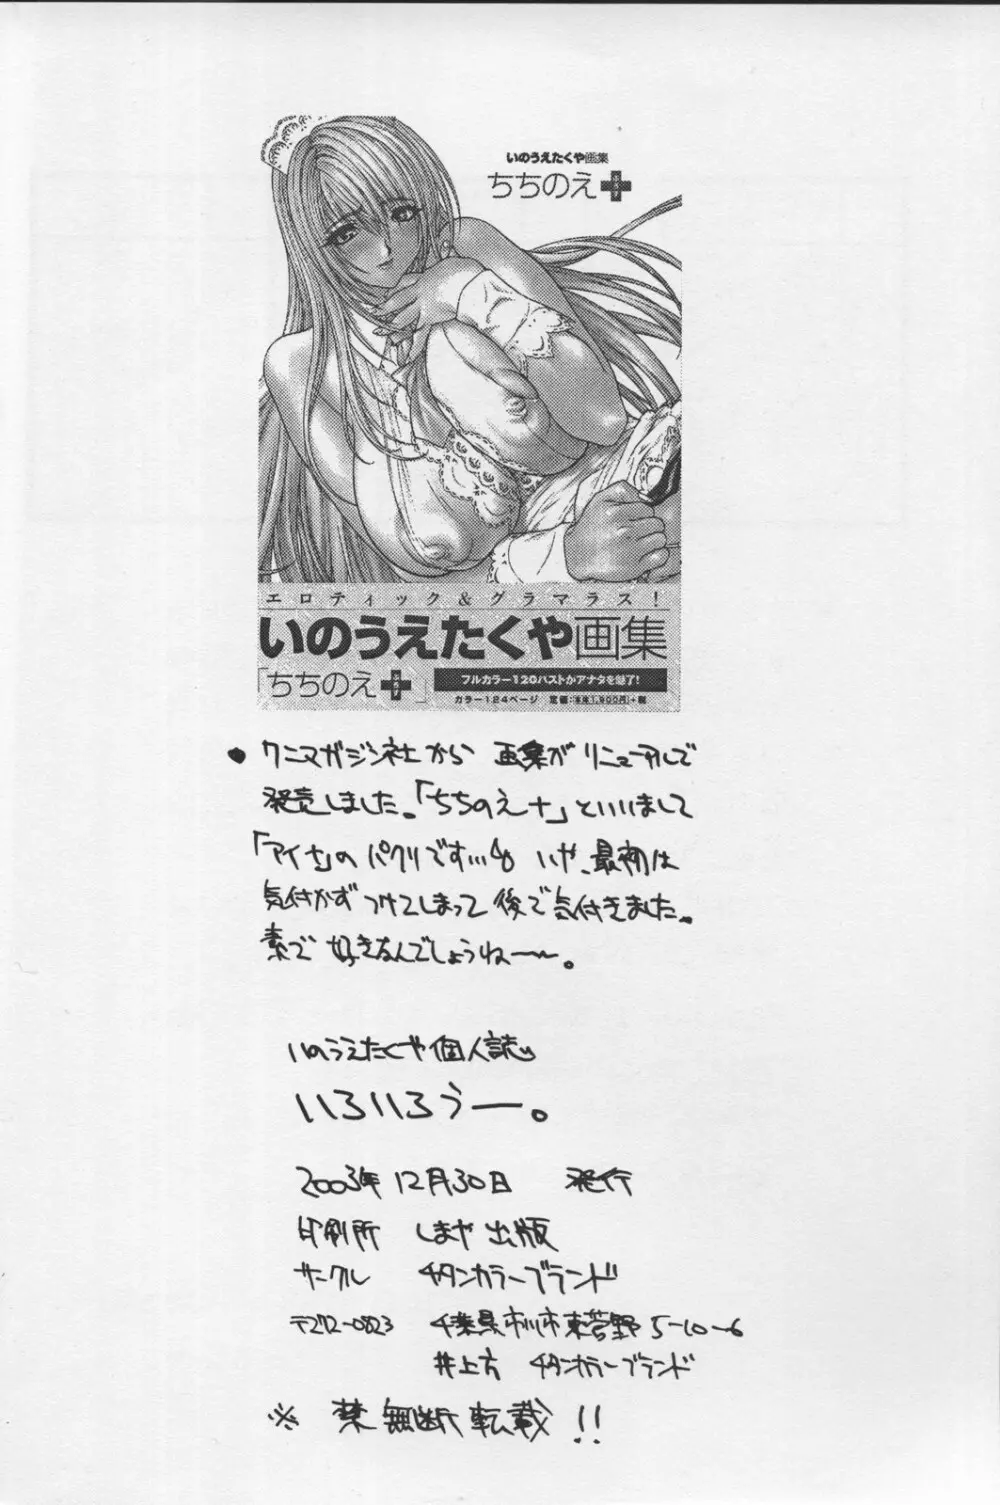 いのうえたくや画集
ちちのえ✚
エロティック&グラマラス!
いのうえたくや画集
「ちちのえ✚」
フルカラー120バストがアナタを魅了!
カラー124ページ 定価:本体1,900円+税
● ワニマガジン社から 画集がリニューアルして
発売しました。「ちちのえ+」といいまして
「アイナ」の パクリです… いや、最初は
気付かず つけてしまって 後で気付きました。
素で 好きなんでしょうねー〜。
いのうえたくや個人誌
いろいろうー。
2003年 12月30日 発行
印刷所 しまや出版
サークル チタンカラーブランド
〒272-0823 千葉県市川市東菅野 5-10-6
井上方 チタンカラーブランド
※ 禁無断転載!!